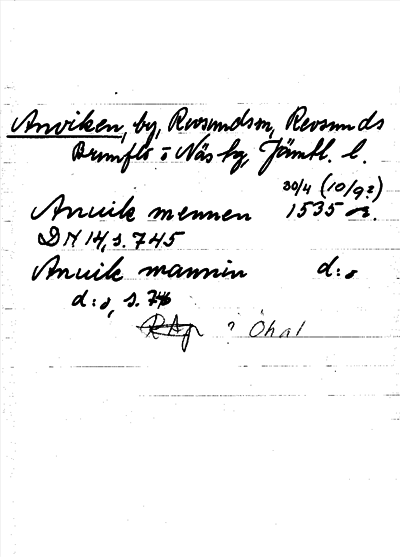 Anviken, by, Revsunds sn, Revsunds
Brunflo o Näs tg, Jämtl. l.
30/4 (10/9?)
Anuik mennen 1535 or.
DN 14, s. 745
Anuik mannin d:o
d:o, s. 746
RAp ? Ohal